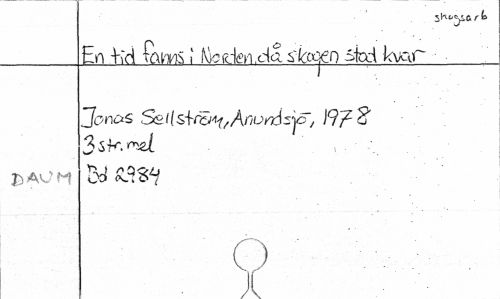 skogsarb
En tid fanns i Norden, då skogen stod kvar
Jonas Sellström, Anundsjö, 1978
3 str. mel
DAUM Bd 2984